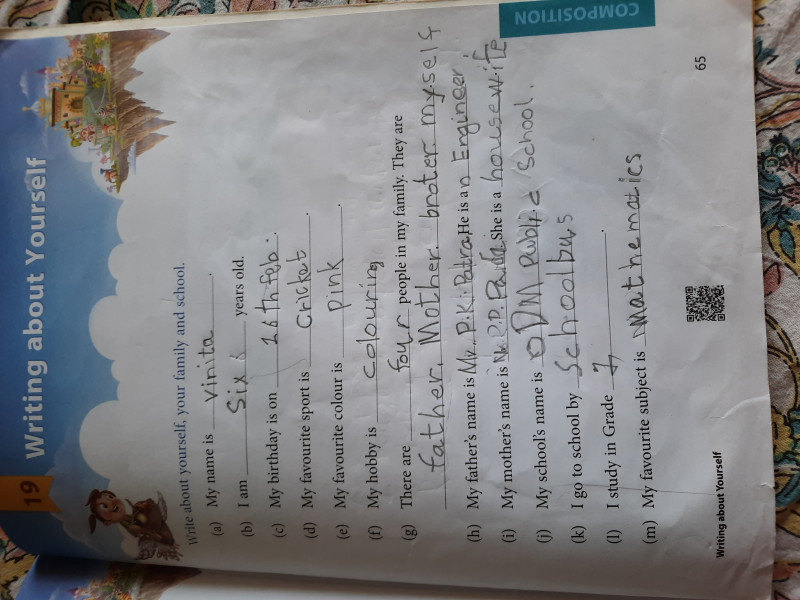 19 Writing about Yourself
Write about yourself, your family and school.
(a) My name is Vinita.
(b) I am Six years old.
(c) My birthday is on 16th Feb.
(d) My favourite sport is Cricket.
(e) My favourite colour is pink.
(f) My hobby is colouring
(g) There are four people in my family. They are
father, Mother, broter myself
(h) My father's name is Mr. P.K. Patra. He is an Engineer.
(i) My mother's name is P.P. She is a housewife
(j) My school's name is ODM School.
(k) I go to school by Schoolbus
(l) I study in Grade 1.
(m) My favourite subject is Mathematics
Writing about Yourself
65
COMPOSITION